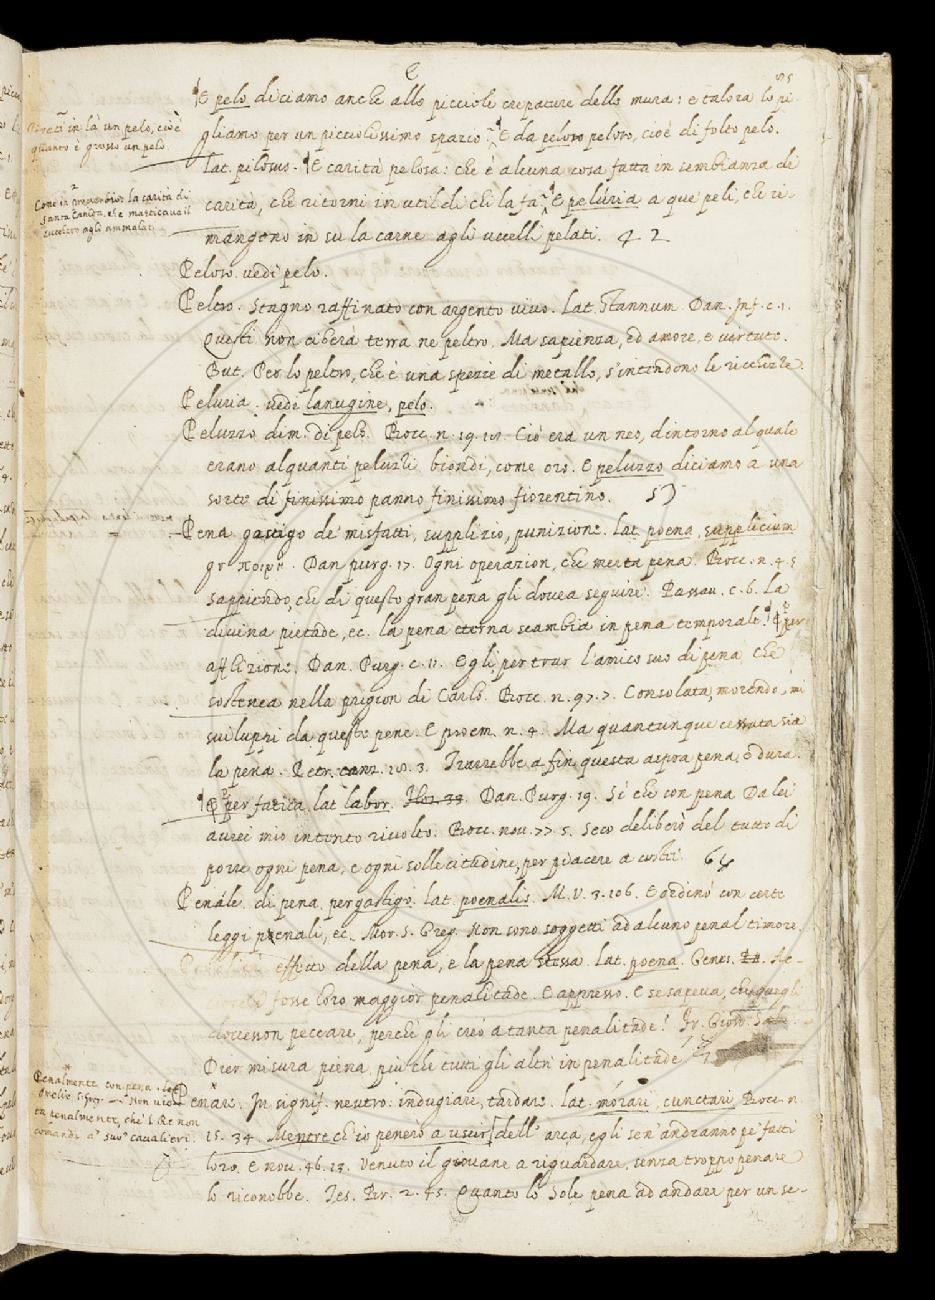 E
E pelo diciamo anche alle picciole crepature delle mura: e talora lo pi-
gliamo per un piccolissimo spazio. E da peloso peloso, cioè di folto pelo.
lat. pilosus. E carità pelosa: che è alcuna cosa fatta in sembianza di
carità, che ritorni in util di chi la fa. E pelúria a que' peli, che ri-
mangono in su la carne agli uccelli pelati. 42
in là un pelo, cioè
quanto è grosso un pelo.
Come in proverbio: la carità di
santa che masticava il
zucchero agli ammalati.
Peloso. vedi pelo.
Peltro. Stagno raffinato con argento vivo. Lat. Stannum. Dan. Inf. c. 1.
Questi non ciberà terra ne peltro, Ma sapienza, ed amore, e virtute.
But. Per lo peltro, che è una spezie di metallo, s'intendono le ricchezze.
Peluria. vedi lanugine, pelo.
Peluzzo dim. di pelo. Bocc. n. 19. Ciò era un neo, dintorno al quale
erano alquanti peluzzi biondi, come oro. E peluzzo diciamo a una
sorte di finissimo panno finissimo fiorentino. 53
Pena gastigo de' misfatti, supplizio, punizione. lat. poena, supplicium
gr. Dan purg. 17. Ogni operazion, che merta pena. Bocc. n. 4. 5
sappiendo, che di questo gran pena gli dovea seguire. Passav. c. 6. La
divina pietade, ec. la pena eterna scambia in pena temporale. E per
afflizione. Dan. Purg. c. 11. Egli per trar l'amico suo di pena che
sostenea nella prigion di Carlo. Bocc. n. 97. 7. Consolata, morendo, mi
sviluppi da queste pene. E proem. n. 4. Ma quantunque cessata sia
la pena. Petr. canz. 18. 3. Trarrebbe a fin questa aspra pena, e dura.
E per fatica. lat. labor. Dan. Purg. 19. Sì che con pena Da lei
aurei mio intento rivolto. Bocc. nov. 77. 5. Seco deliberò del tutto di
porre ogni pena, e ogni sollecitudine, per piacere a costei. 64
Penále. di pena. per gastigo. Lat. poenalis. M. V. 3. 106. E ordinò con certe
leggi penali, ec. Mor. S. Greg. Non sono soggetti ad alcuno penal timore.
effetto della pena, e la pena stessa. Lat. poena. Genes.
fosse loro maggior penalitade. E appresso. E se sapeva, che quegli
dovesson peccare, perchè gli creò a tanta penalitade! Fr. Giord.
Dier misura piena, più che tutti gli altri in penalitade
Penalmente. con pena. lat.
Non vie-
ta penalmente, che 'l Re non
comandi a' suo' cavalieri.
Penare. In signif. neutro. indugiare, tardare. lat. morari, cunctari. Bocc. n.
15. 34. Mentre ch'io penerò a uscir dell' arca, egli sen' andranno pe' fatti
loro. E nou. 46. 13. Venuto il giovane a riguardare, senza troppo penare
lo riconobbe. Tes. Br. 2. 45. Quanto lo Sole pena ad andare per un se-